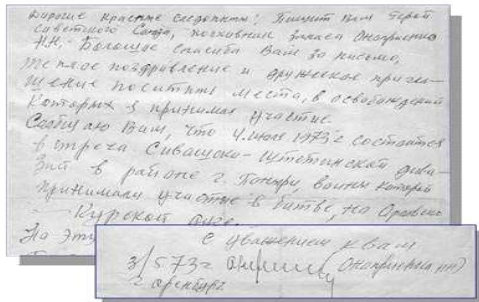 Дорогие красные следопыты! Пишет Вам Герой
Советского Союза, полковник запаса Онаприенко
Н.Н. Большое спасибо Вам за письмо,
теплое поздравление и дружеское пригла-
шение посетить места, в освобождении
которых я принимал участие.
Сообщаю Вам, что 4 июля 1973 г состоится
встреча Сивашско-Штеттинской диви-
зии в районе г. Поныри, воины которой
принимали участие в битве, на Орловско
Курской дуге.
На эту
С уважением к Вам
3/5 73 г (Онаприенко НН)
г Оренбург